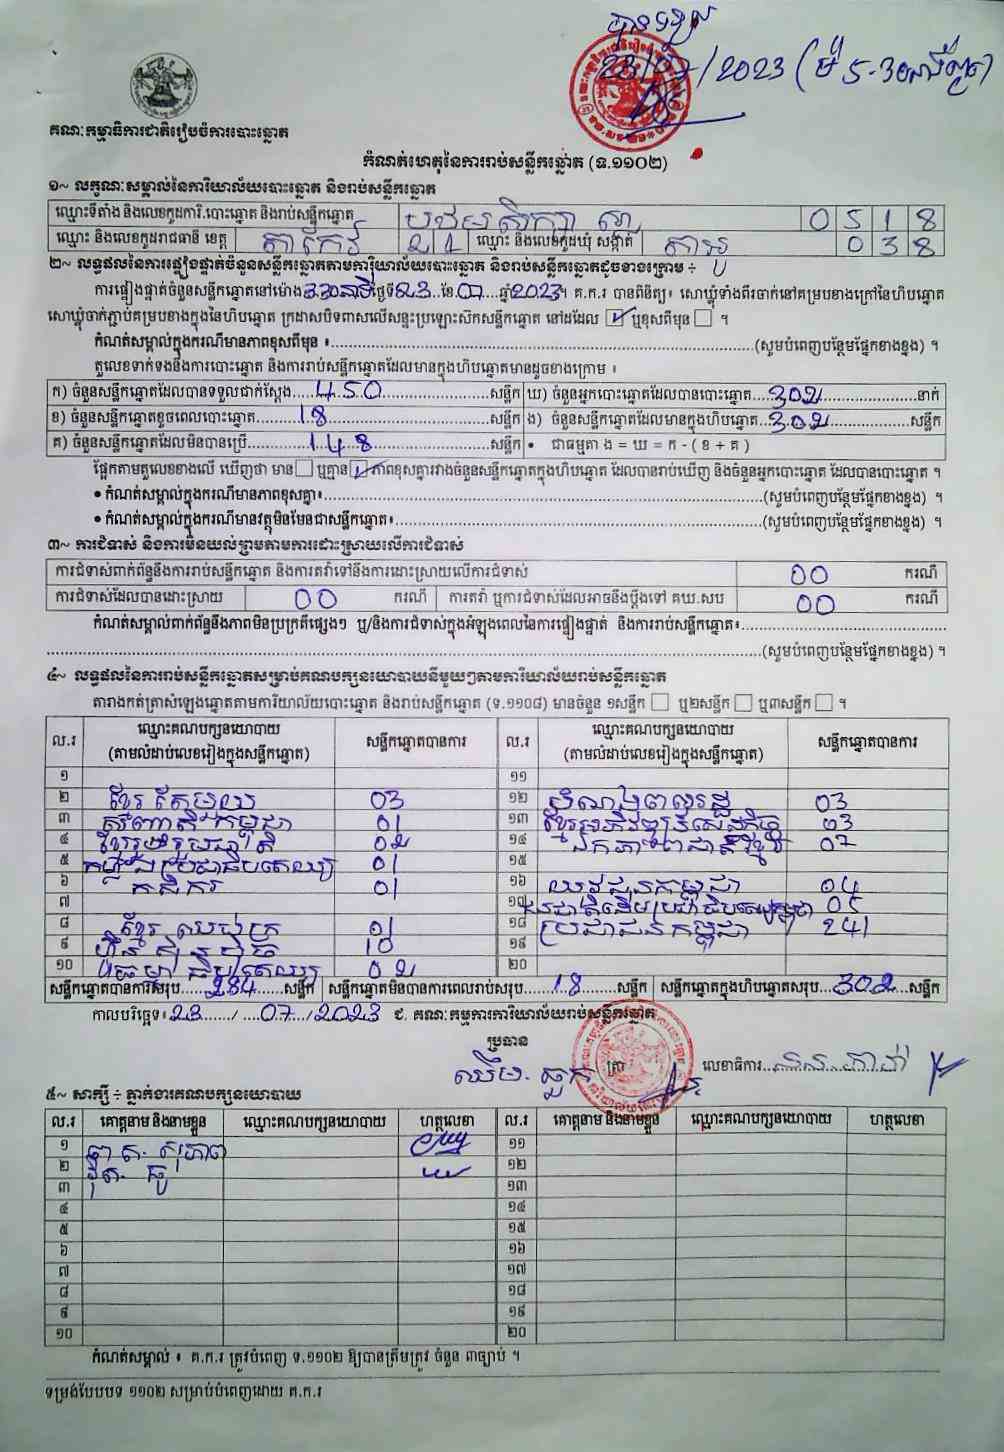 បានទទួល
23/07/2023 (ម៉ 5-30នាទីល្ងាច)
គណៈកម្មាធិការជាតិរៀបចំការបោះឆ្នោត
កំណត់ហេតុនៃការរាប់សន្លឹកឆ្នោត (ទ.១១០២)
១~ លក្ខណៈសម្គាល់នៃការិយាល័យបោះឆ្នោត និងរាប់សន្លឹកឆ្នោត
ឈ្មោះទីតាំង និងលេខកូដការិ.បោះឆ្នោត និងរាប់សន្លឹកឆ្នោត បឋមសិក្សា 0 5 1 8
ឈ្មោះ និងលេខកូដរាជធានី ខេត្ត តាកែវ 21 ឈ្មោះ និងលេខកូដឃុំ សង្កាត់ 0 3 8
២~ លទ្ធផលនៃការផ្ទៀងផ្ទាត់ចំនួនសន្លឹកឆ្នោតតាមការិយាល័យបោះឆ្នោត និងរាប់សន្លឹកឆ្នោតដូចខាងក្រោម ÷
ការផ្ទៀងផ្ទាត់ចំនួនសន្លឹកឆ្នោតនៅម៉ោង 3.30នាទី ថ្ងៃទី 23 ខែ 07 ឆ្នាំ 2023។ គ.ក.រ បានពិនិត្យ៖ សោឃ្លុំទាំងពីរចាក់នៅគម្របខាងក្រៅនៃហិបឆ្នោត
សោឃ្លុំចាក់ភ្ជាប់គម្របខាងក្នុងនៃហិបឆ្នោត ក្រដាសបិទពាសលើសន្ទះប្រឡោះស៊កសន្លឹកឆ្នោត នៅដដែល ☑ ឬខុសពីមុន ☐ ។
កំណត់សម្គាល់ក្នុងករណីមានភាពខុសពីមុន ៖.....(សូមបំពេញបន្ថែមផ្នែកខាងខ្នង) ។
តួលេខទាក់ទងនឹងការបោះឆ្នោត និងការរាប់សន្លឹកឆ្នោតដែលមានក្នុងហិបឆ្នោតមានដូចខាងក្រោម ៖
ក) ចំនួនសន្លឹកឆ្នោតដែលបានទទួលជាក់ស្តែង....450....សន្លឹក ឃ) ចំនួនអ្នកបោះឆ្នោតដែលបានបោះឆ្នោត....302....នាក់
ខ) ចំនួនសន្លឹកឆ្នោតខូចពេលបោះឆ្នោត....18....សន្លឹក ង) ចំនួនសន្លឹកឆ្នោតដែលមានក្នុងហិបឆ្នោត....302....សន្លឹក
គ) ចំនួនសន្លឹកឆ្នោតដែលមិនបានប្រើ....148....សន្លឹក • ជាធម្មតា ង = ឃ = ក - ( ខ + គ )
ផ្អែកតាមតួលេខខាងលើ ឃើញថា មាន ☐ ឬគ្មាន ☑ ភាពខុសគ្នារវាងចំនួនសន្លឹកឆ្នោតក្នុងហិបឆ្នោត ដែលបានរាប់ឃើញ និងចំនួនអ្នកបោះឆ្នោត ដែលបានបោះឆ្នោត ។
• កំណត់សម្គាល់ក្នុងករណីមានភាពខុសគ្នា៖.....(សូមបំពេញបន្ថែមផ្នែកខាងខ្នង) ។
• កំណត់សម្គាល់ក្នុងករណីមានវត្ថុមិនមែនជាសន្លឹកឆ្នោត៖.....(សូមបំពេញបន្ថែមផ្នែកខាងខ្នង) ។
៣~ ការជំទាស់ និងការមិនយល់ព្រមតាមការដោះស្រាយលើការជំទាស់
ការជំទាស់ពាក់ព័ន្ធនឹងការរាប់សន្លឹកឆ្នោត និងការតវ៉ាទៅនឹងការដោះស្រាយលើការជំទាស់ 00 ករណី
ការជំទាស់ដែលបានដោះស្រាយ 00 ករណី ការតវ៉ា ឬការជំទាស់ដែលអាចនឹងប្តឹងទៅ គឃ.សប 00 ករណី
កំណត់សម្គាល់ពាក់ព័ន្ធនឹងភាពមិនប្រក្រតីផ្សេងៗ ឬ/និងការជំទាស់ក្នុងអំឡុងពេលនៃការផ្ទៀងផ្ទាត់ និងការរាប់សន្លឹកឆ្នោត៖.....
.....(សូមបំពេញបន្ថែមផ្នែកខាងខ្នង) ។
៤~ លទ្ធផលនៃការរាប់សន្លឹកឆ្នោតសម្រាប់គណបក្សនយោបាយនីមួយៗតាមការិយាល័យរាប់សន្លឹកឆ្នោត
តារាងកត់ត្រាសំឡេងឆ្នោតតាមការិយាល័យបោះឆ្នោត និងរាប់សន្លឹកឆ្នោត (ទ.១១០៨) មានចំនួន ១សន្លឹក ☐ ឬ២សន្លឹក ☐ ឬ៣សន្លឹក ☐ ។
ល.រ ឈ្មោះគណបក្សនយោបាយ (តាមលំដាប់លេខរៀងក្នុងសន្លឹកឆ្នោត) សន្លឹកឆ្នោតបានការ ល.រ ឈ្មោះគណបក្សនយោបាយ (តាមលំដាប់លេខរៀងក្នុងសន្លឹកឆ្នោត) សន្លឹកឆ្នោតបានការ
១ ១១
២ ខ្មែរតែមួយ 03 ១២ សំណាងពលរដ្ឋ 03
៣ សញ្ជាតិកម្ពុជា 01 ១៣ ខ្មែរអភិវឌ្ឍន៍សេដ្ឋកិច្ច 03
៤ ខ្មែររួបរួមជាតិ 02 ១៤ ឯកភាពជាតិខ្មែរ 07
៥ កម្លាំងប្រជាធិបតេយ្យ 01 ១៥
៦ កសិករ 01 ១៦ យុវជនកម្ពុជា 04
៧ ១៧ ជនជាតិដើមប្រជាធិបតេយ្យកម្ពុជា 05
៨ ខ្មែរឈប់ក្រ 01 ១៨ ប្រជាជនកម្ពុជា 241
៩ ហ្វ៊ុនស៊ិនប៉ិច 10 ១៩
១០ ធម្មាធិបតេយ្យ 02 ២០
សន្លឹកឆ្នោតបានការសរុប....284....សន្លឹក សន្លឹកឆ្នោតមិនបានការពេលរាប់សរុប....18....សន្លឹក សន្លឹកឆ្នោតក្នុងហិបឆ្នោតសរុប...302...សន្លឹក
កាលបរិច្ឆេទ៖ 23 / 07 / 2023 ជ. គណៈកម្មការការិយាល័យរាប់សន្លឹកឆ្នោត
ប្រធាន
ត្រា លេខាធិការ
៥~ សាក្សី ÷ ភ្នាក់ងារគណបក្សនយោបាយ
ល.រ គោត្តនាម និងនាមខ្លួន ឈ្មោះគណបក្សនយោបាយ ហត្ថលេខា ល.រ គោត្តនាម និងនាមខ្លួន ឈ្មោះគណបក្សនយោបាយ ហត្ថលេខា
១ ១១
២ ១២
៣ ១៣
៤ ១៤
៥ ១៥
៦ ១៦
៧ ១៧
៨ ១៨
៩ ១៩
១០ ២០
កំណត់សម្គាល់ ៖ គ.ក.រ ត្រូវបំពេញ ទ.១១០២ ឱ្យបានត្រឹមត្រូវ ចំនួន ៣ច្បាប់ ។
ទម្រង់បែបបទ ១១០២ សម្រាប់បំពេញដោយ គ.ក.រ